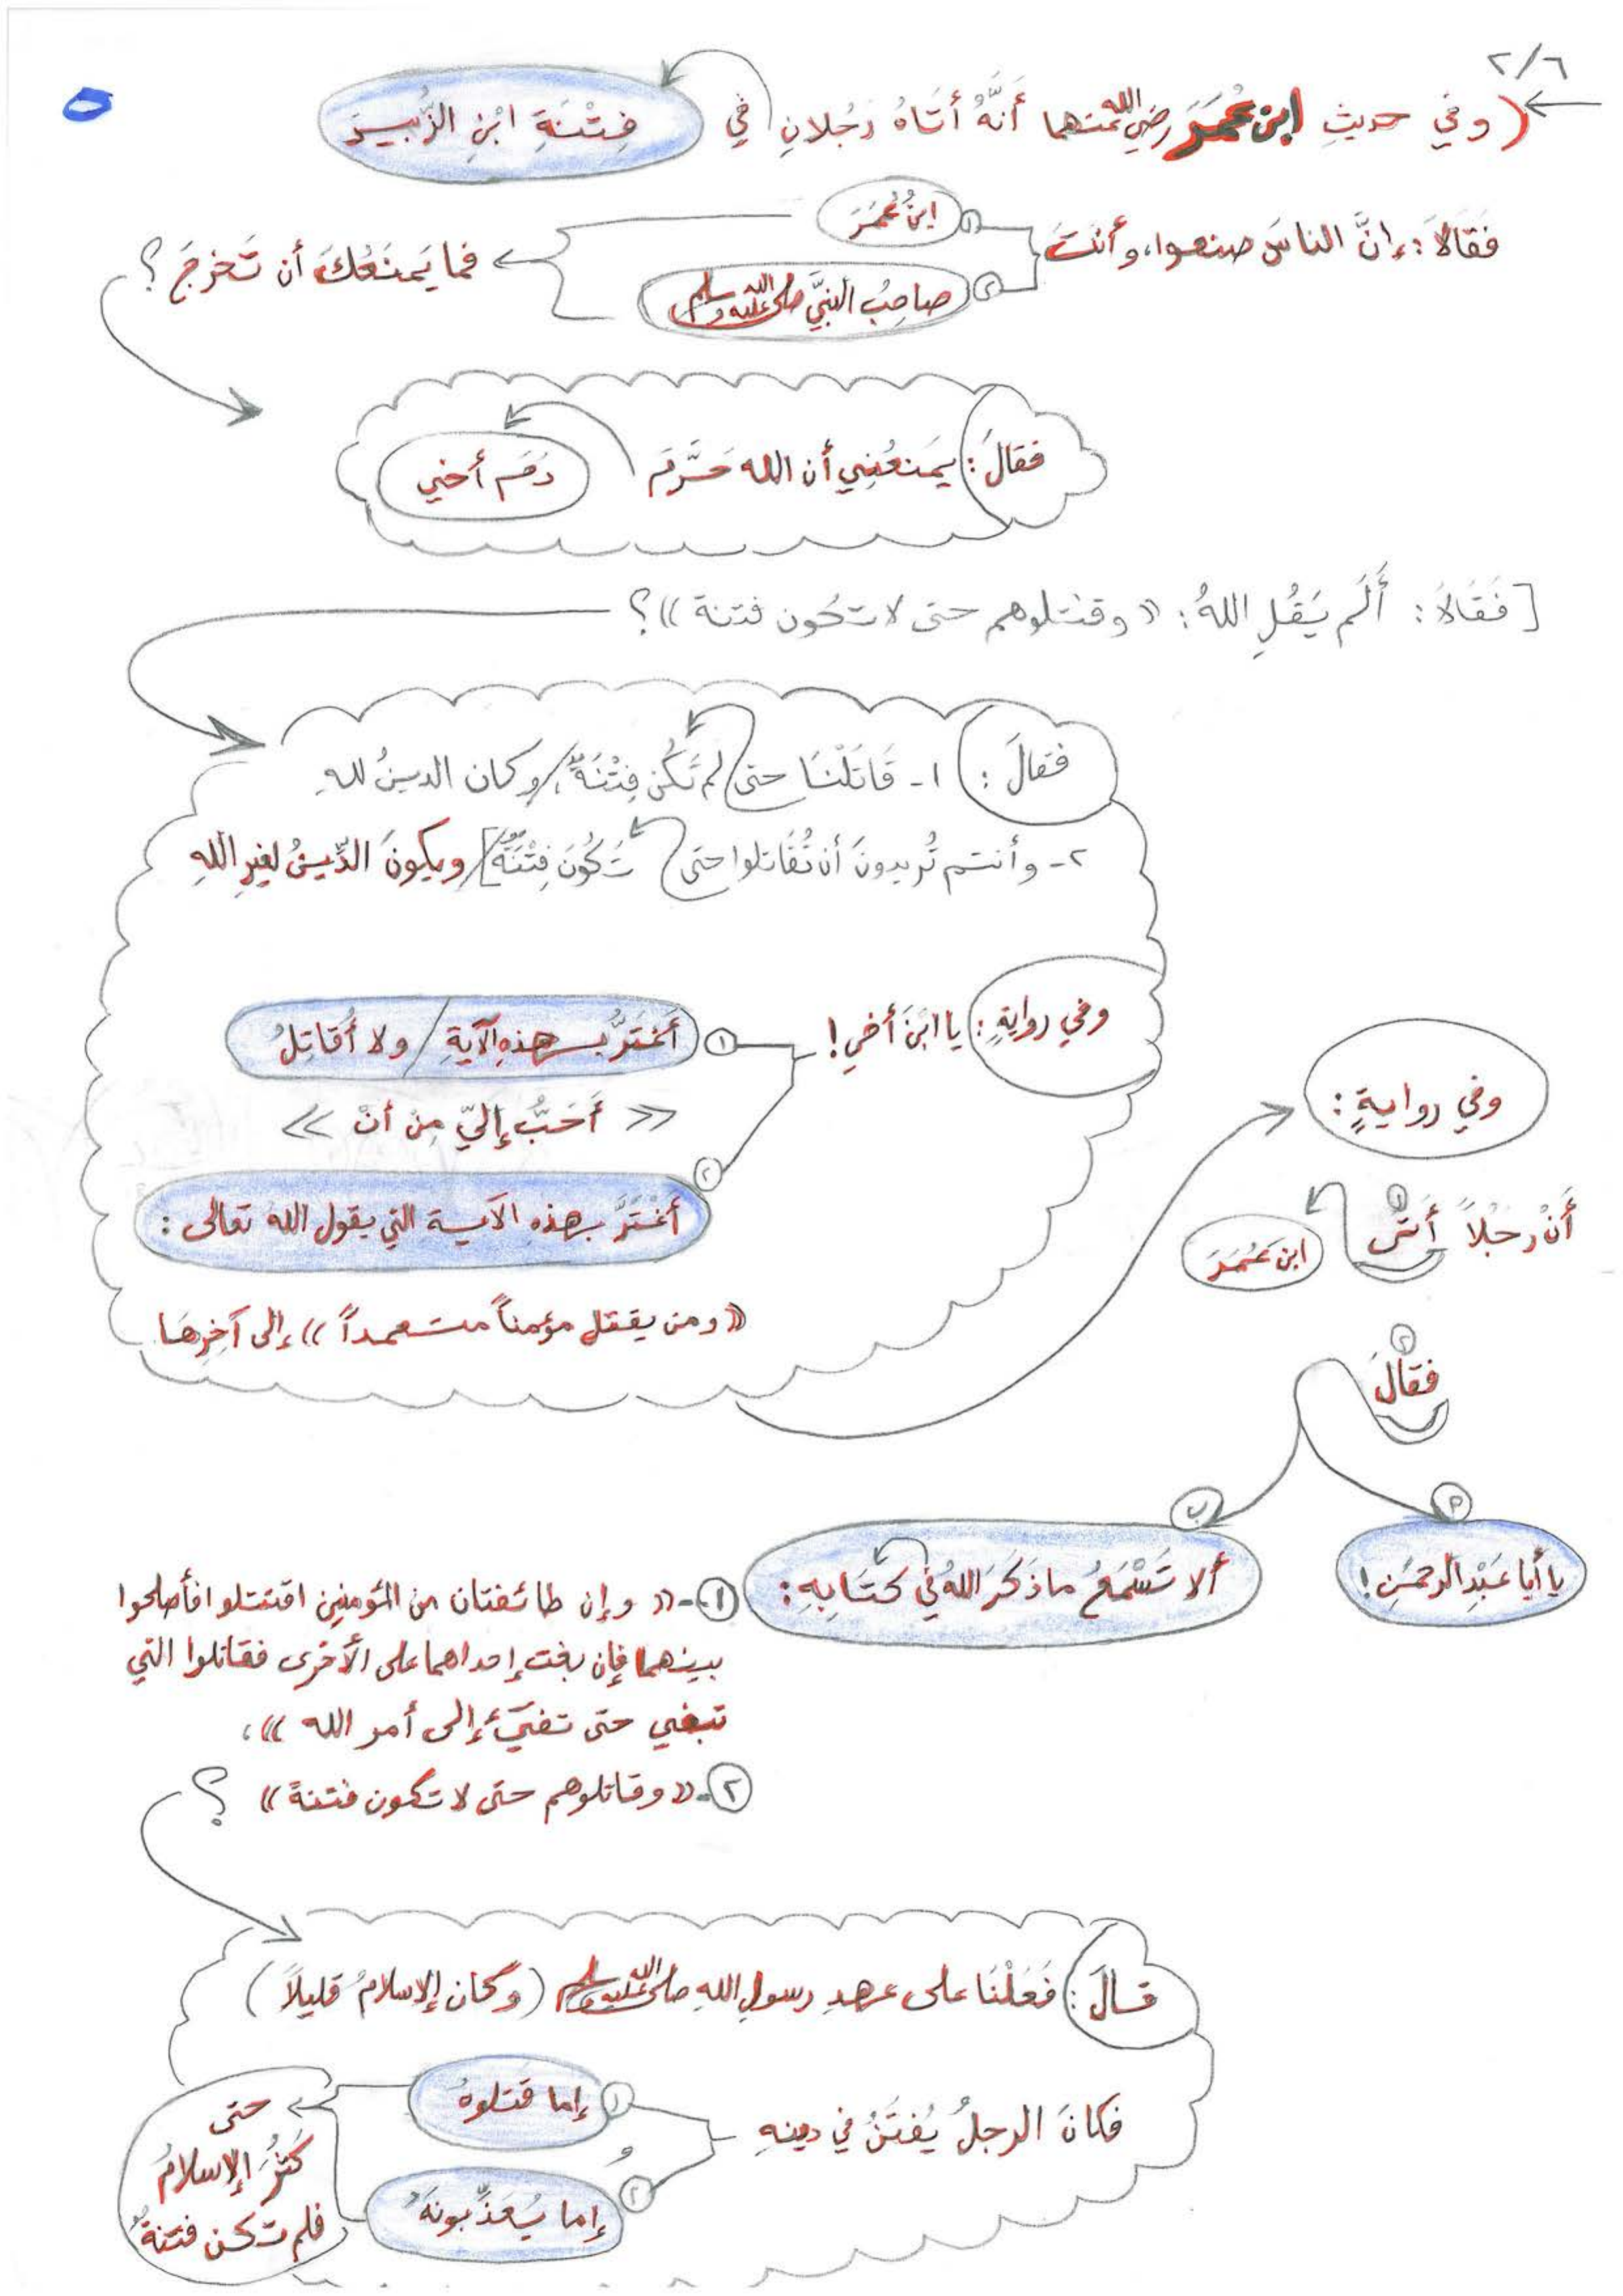 ٢/٦
(وفي حديثِ ابن عُمَرَ رضي الله عنهما أنَّهُ أتَاهُ رَجُلانِ في فِتْنَةِ ابْنِ الزُّبيرِ
فَقَالاَ: إنَّ الناسَ صنعوا، وأنتَ
١ ابنُ عُمَرَ
٢ صاحِبُ النبيَّ صلى الله عليه وسلم
فما يَمنَعُكَ أن تَخرجَ؟
فقالَ: يَمنَعُنِي أن الله حَرَّمَ دَمَ أخي
[فَقَالاَ: أَلَم يَقُلِ اللهُ: «وقتلوهم حتى لا تكون فتنة»؟
فقالَ: ١- قَاتَلْنَا حتى لم تَكُن فِتْنَةٌ/ وكان الدينُ للهِ
٢- وأنتم تُريدونَ أن تُقَاتلوا حتى تَكُونَ فِتْنَةٌ]/ ويكونَ الدِّينُ لغيرِ اللهِ
وفي روايةٍ: يا ابْنَ أخي!
١ أَغتَرُّ بهذهِ الآيةِ / ولا أُقاتِلُ
« أَحَبُّ إليّ مِنْ أنْ »
٢ أَغْتَرَّ بهذهِ الآية التي يقول الله تعالى:
«ومن يقتل مؤمناً متعمداً» إلى آخِرِهَا
وفي روايةٍ:
أنْ رَجُلاً ١ أتى ابنَ عُمَرَ
٢ فقالَ
أ يا أبا عَبْدِ الرحمنِ!
ب ألا تَسْمَعُ ما ذَكَرَ اللهُ في كتَابِهِ:
١- «وإن طائفتان من المؤمنين اقتتلوا فأصلحوا
بينهما فإن بغت إحداهما على الأخرى فقاتلوا التي
تبغي حتى تفيَء إلى أمر الله»،
٢- «وقاتلوهم حتى لا تكون فتنةً» ؟
قالَ: فَعَلْنَا على عهدِ رسولِ اللهِ صلى الله عليه وسلم (وكان الإسلامُ قليلاً)
فكانَ الرجلُ يُفتَنُ في دينهِ
١ إما قَتلوهُ
و
٢ إما يُعَذِّبونَهُ
حتى
كَثُرَ الإسلامُ
فلم تكن فتنةٌ